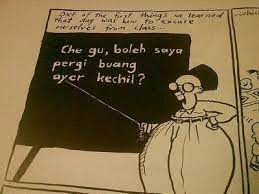 one of the first things we learned
that day was how to excuse
ourselves from class—
Che gu, boleh saya
pergi buang
ayer kechil?